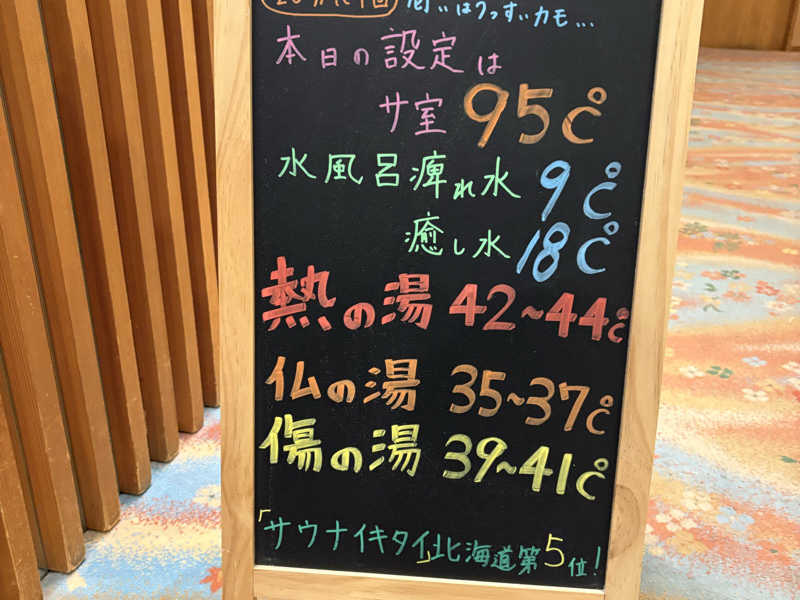 本日の設定は
サ室 95℃
水風呂 痺れ水 9℃
癒し水 18℃
熱の湯 42~44℃
仏の湯 35~37℃
傷の湯 39~41℃
「サウナイキタイ」北海道第5位!